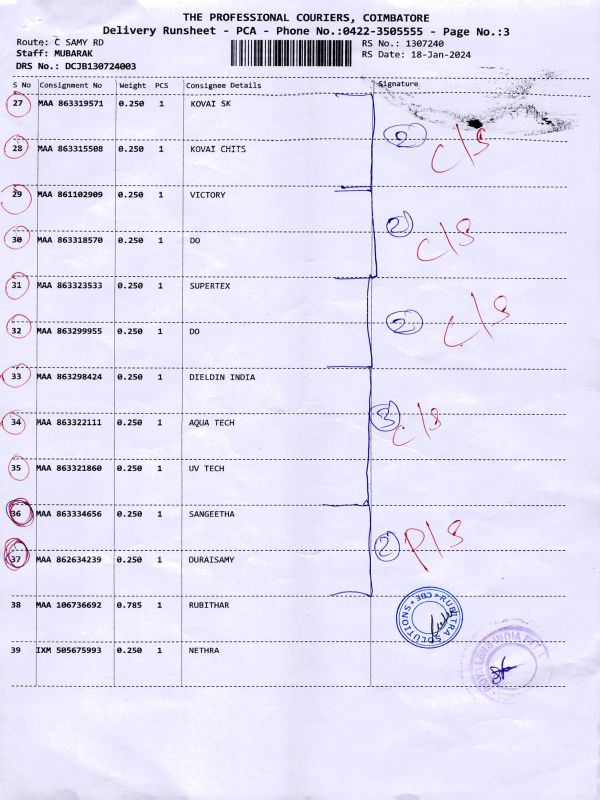 THE PROFESSIONAL COURIERS, COIMBATORE
Delivery Runsheet - PCA - Phone No.:0422-3505555 - Page No.:3
Route: C SAMY RD
RS No.: 1307240
Staff: MUBARAK
RS Date: 18-Jan-2024
DRS No.: DCJB130724003
S No Consignment No Weight PCS Consignee Details Signature
27 MAA 863319571 0.250 1 KOVAI SK
2 C/S
28 MAA 863315508 0.250 1 KOVAI CHITS
29 MAA 861102909 0.250 1 VICTORY
2 C/S
30 MAA 863318570 0.250 1 DO
31 MAA 863323533 0.250 1 SUPERTEX
2 C/S
32 MAA 863299955 0.250 1 DO
33 MAA 863298424 0.250 1 DIELDIN INDIA
34 MAA 863322111 0.250 1 AQUA TECH
3 C/S
35 MAA 863321860 0.250 1 UV TECH
36 MAA 863334656 0.250 1 SANGEETHA
2 P/S
37 MAA 862634239 0.250 1 DURAISAMY
38 MAA 106736692 0.785 1 RUBITHAR
RUBITRA SOLUTIONS * CBE *
39 IXM 505675993 0.250 1 NETHRA